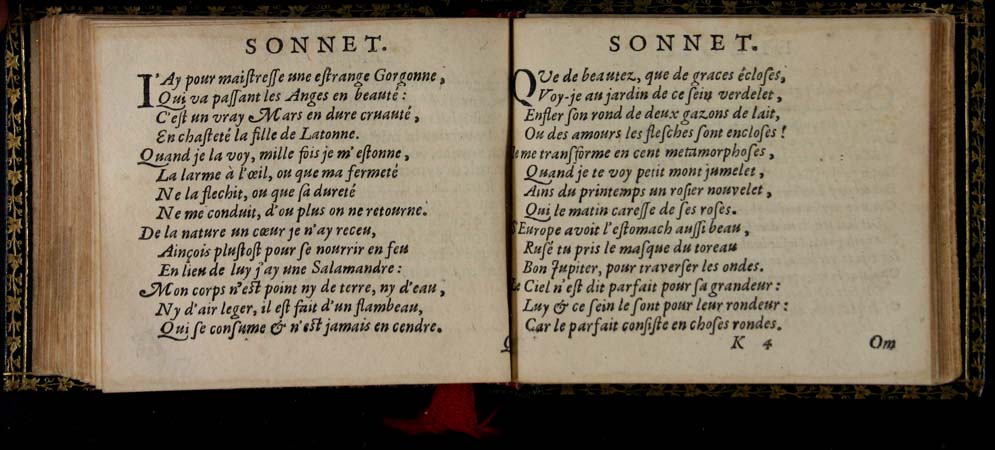 SONNET.
I'Ay pour maiſtreſſe une eſtrange Gorgonne,
Qui va paſſant les Anges en beauté:
C'eſt un vray Mars en dure cruauté,
En chaſteté la fille de Latonne.
Quand je la voy, mille fois je m'eſtonne,
La larme à l'œil, ou que ma fermeté
Ne la flechit, ou que ſa dureté
Ne me conduit, d'ou plus on ne retourne.
De la nature un cœur je n'ay receu,
Ainçois pluſtoſt pour ſe nourrir en feu
En lieu de luy j'ay une Salamandre:
Mon corps n'eſt point ny de terre, ny d'eau,
Ny d'air leger, il eſt fait d'un flambeau,
Qui ſe conſume & n'eſt jamais en cendre.
SONNET.
QVe de beautez, que de graces écloſes,
Voy-je au jardin de ce ſein verdelet,
Enfler ſon rond de deux gazons de lait,
Ou des amours les fleſches ſont encloſes!
me transforme en cent metamorphoſes,
Quand je te voy petit mont jumelet,
Ains du printemps un roſier nouvelet,
Qui le matin careſſe de ſes roſes.
S'Europe avoit l'eſtomach auſſi beau,
Ruſé tu pris le maſque du toreau
Bon Jupiter, pour traverſer les ondes.
Ciel n'eſt dit parfait pour ſa grandeur:
Luy & ce ſein le ſont pour leur rondeur:
Car le parfait conſiſte en choſes rondes.
K 4 Om